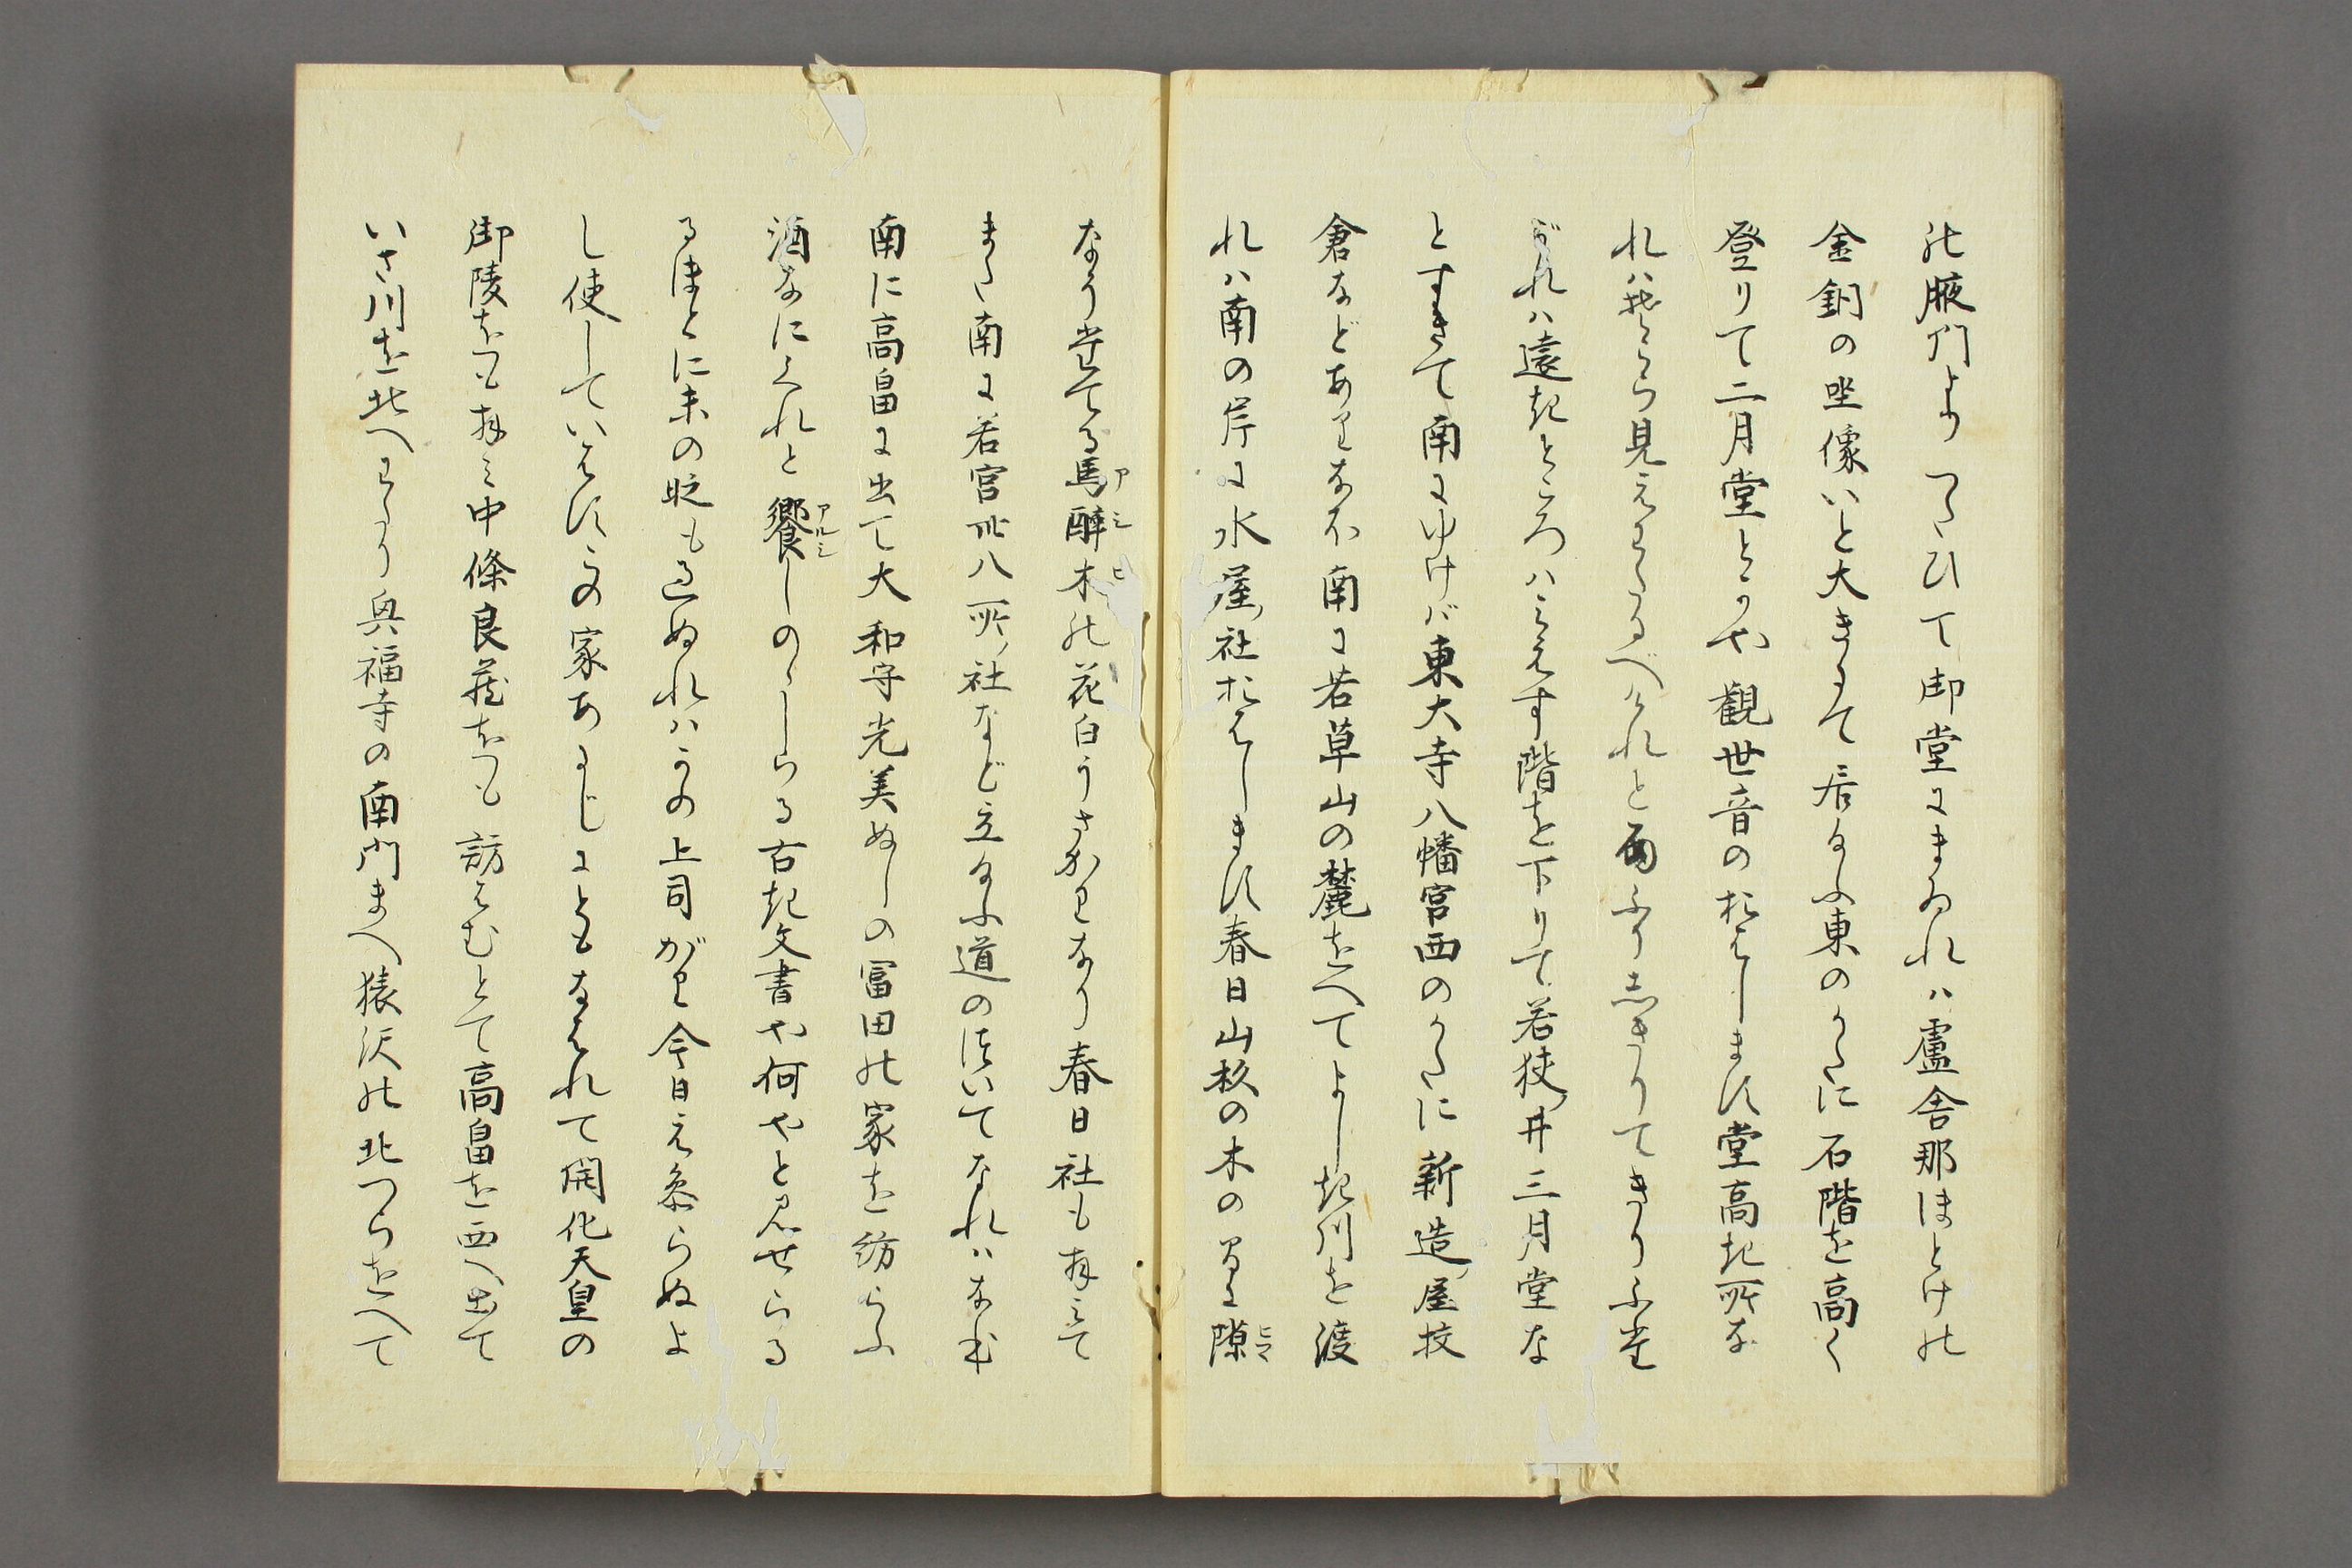 の腋門よりつたひて御堂にまゐれハ盧舎那ほとけの
金銅の坐像いと大きにて居給ふ東のかたに石階を高く
登りて二月堂とかや観世音のおはします堂高き所な
れハそこら見えわたるべけれと雨ふりしきりてきりふた
がれハ遠きところハみえす階を下りて若狭井三月堂な
とすきて南にゆけバ東大寺八幡宮西のかたに新造屋校
倉などありなほ南に若草山の麓をへてよしき川を渡
れハ南の岸に水屋社おはします春日山杉の木の間に隙
なう生たてる馬酔木の花白うさかりなり春日社も拝みて
また南に若宮卅八所社など立給ふ道のほいてなれハなむ
南に高畠に出て大和守光美ぬしの冨田の家を訪らふ
酒なにくれと饗しのゝしらる古き文書や何やと見せらる
るほとに未の貶も過ぬれハかの上司がり今日え参らぬよ
し使していはす此家あるじにともなはれて開化天皇の
御陵をも拝み中條良蔵をも訪はむとて高畠を西へ出て
いさ川を北へわたり興福寺の南門まへ猿沢の北つらをへて